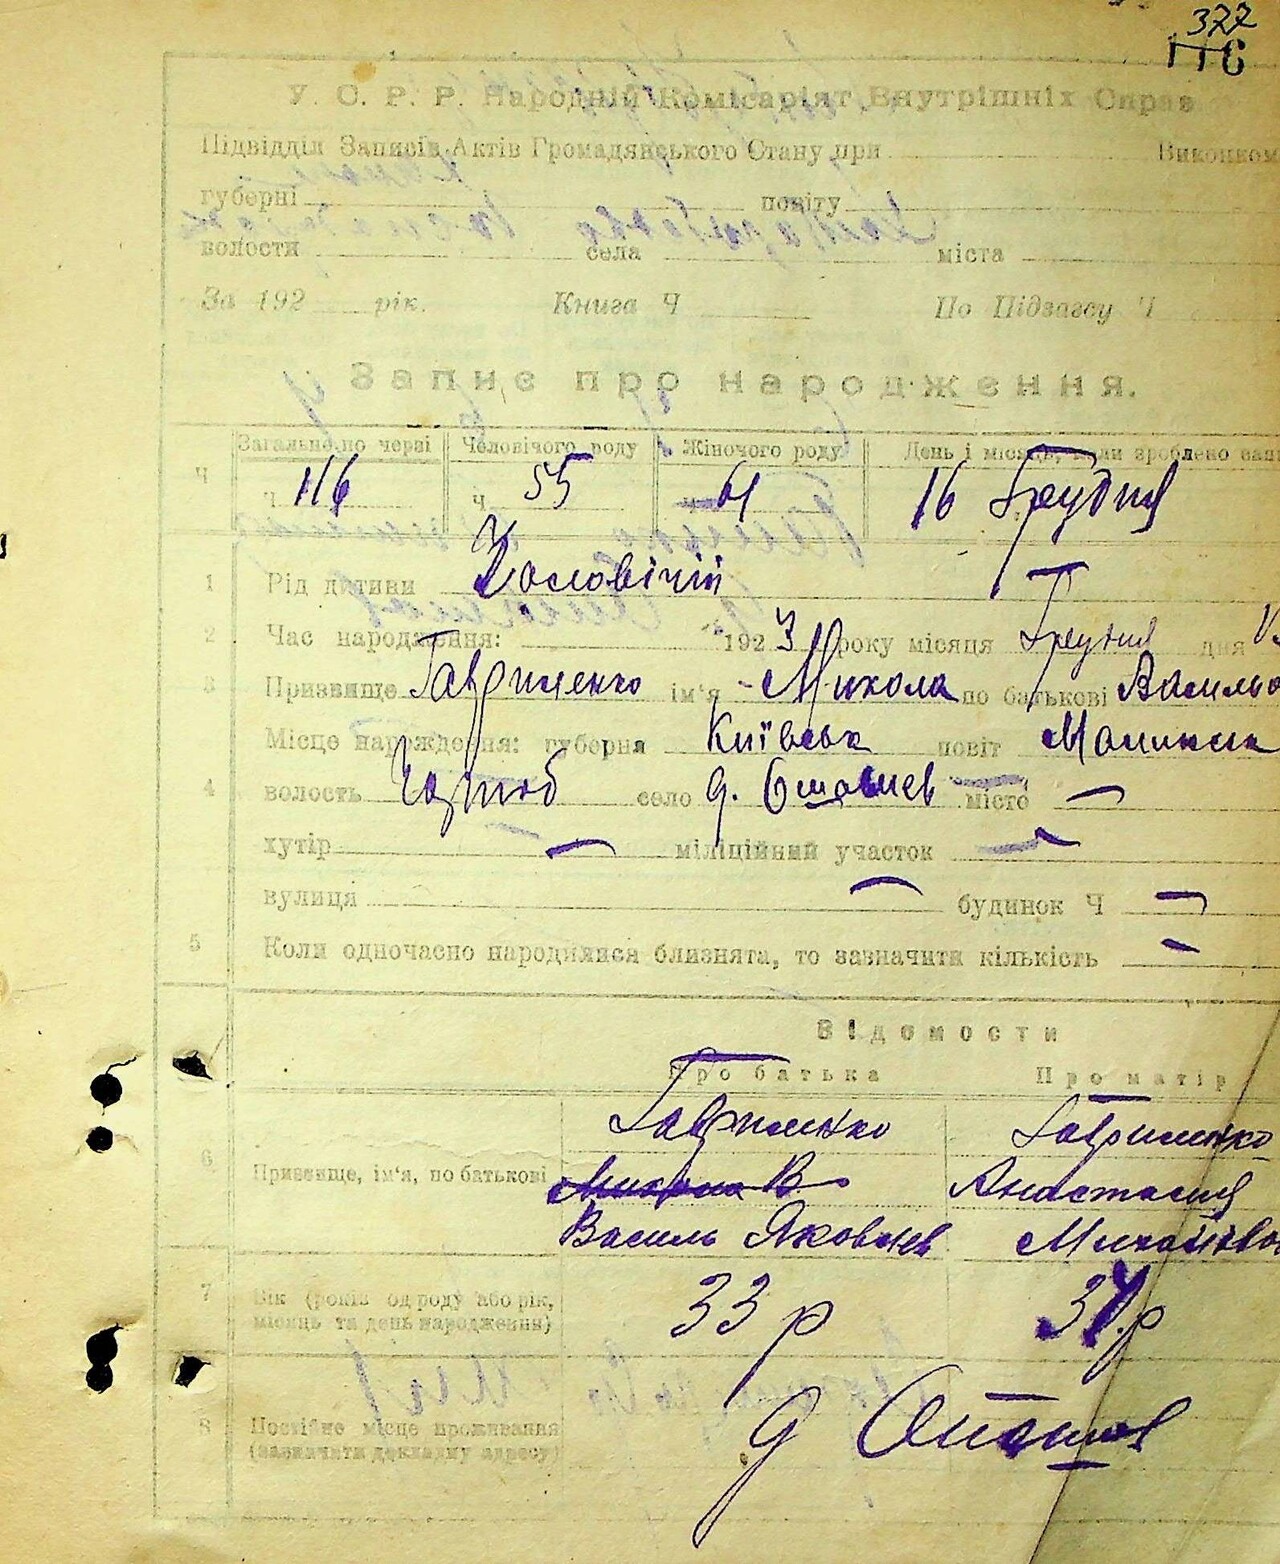 377
116
У. С. Р. Р. Народній Комісаріят Внутрішніх Справ
Підвідділ Записів Актів Громадянського Стану при Виконком
губерні повіту
волости села міста
За 192 рік. Книга Ч По Підзагсу Ч
Запис про народження.
Загально по черзі Человічого роду Жіночого роду День і місяць, коли зроблено запи
Ч ч 116 ч 55 ч 61 16 Грудня
1 Рід дитини Чоловічій
2 Час народження: 1923 року місяця Грудня дня
3 Призвище Гавриленко ім'я Микола по батькові Василь
Місце народження: губерня Київська повіт
4 волость село д. місто —
хутір — міліційний участок —
вулиця — будинок Ч —
5 Коли одночасно народилися близнята, то зазначити кількість —
Відомости
Про батька Про матір
Гавриленко Гавриленко
6 Призвище, ім'я, по батькові Анастасия
Василь Яковлев
7 Вік (років од роду або рік, місяць та день народження) 33 р
8 Постійне місце проживання
(зазначити докладну адресу) д